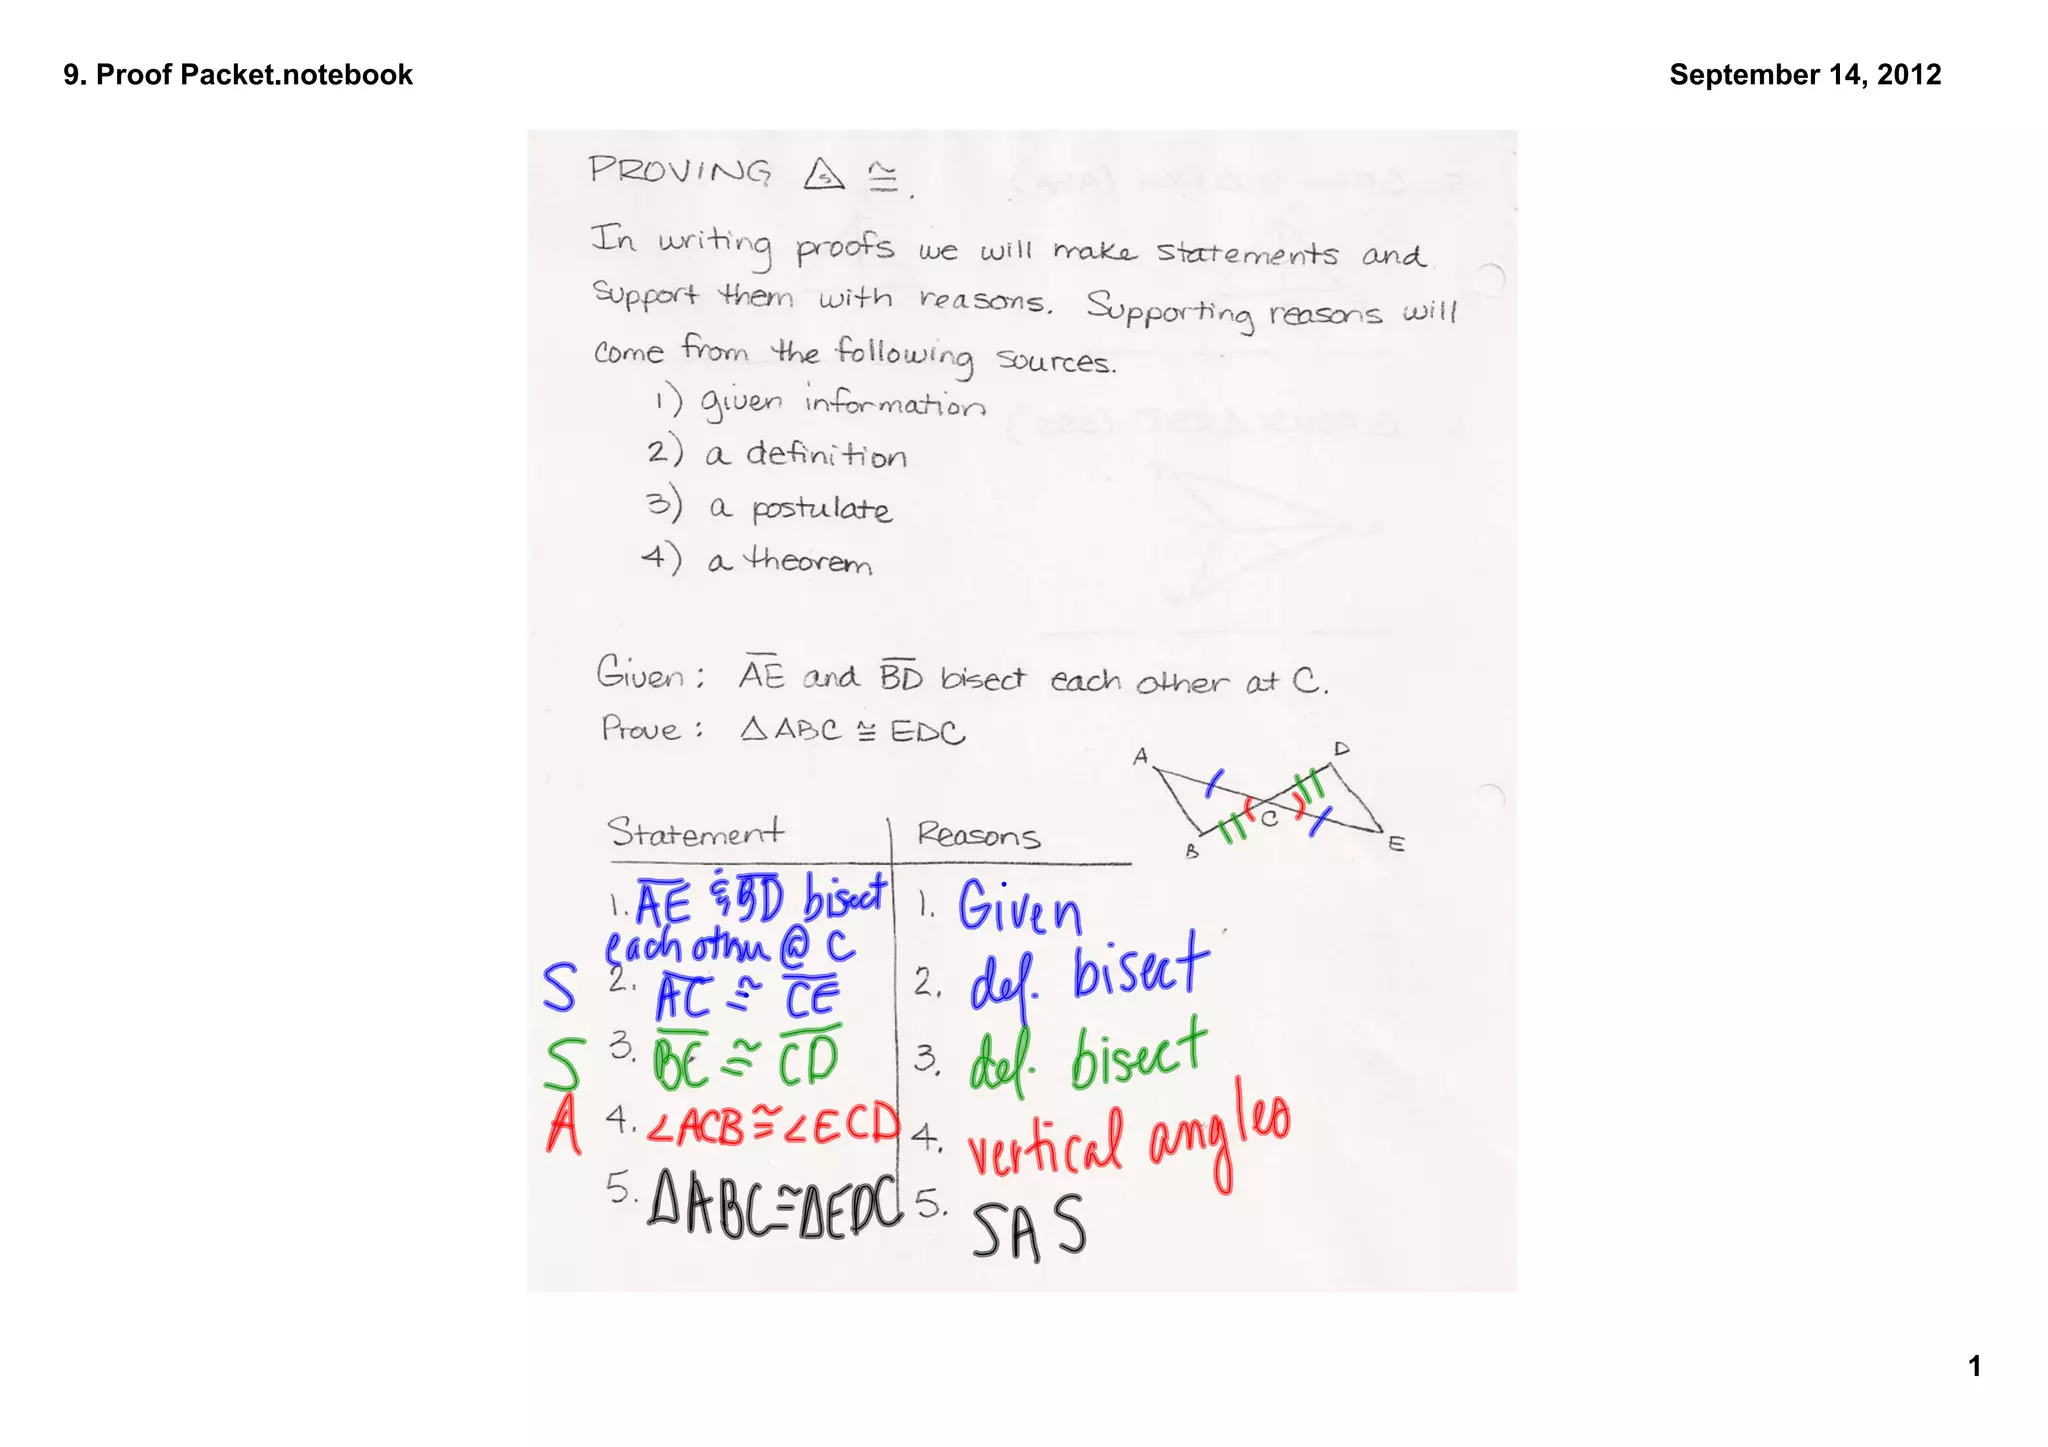 9. Proof Packet.notebook
September 14, 2012
PROVING △s ≅.
In writing proofs we will make statements and
support them with reasons. Supporting reasons will
come from the following sources.
1) given information
2) a definition
3) a postulate
4) a theorem
Given: A̅E̅ and B̅D̅ bisect each other at C.
Prove: △ABC ≅ EDC
A
D
C
B
E
Statement
Reasons
1. A̅E̅ & B̅D̅ bisect
each other @ C
1. Given
S 2. A̅C̅ ≅ C̅E̅
2. def. bisect
S 3. B̅C̅ ≅ C̅D̅
3. def. bisect
A 4. ∠ACB ≅ ∠ECD
4. vertical angles
5. △ABC ≅ △EDC
5. SAS
1